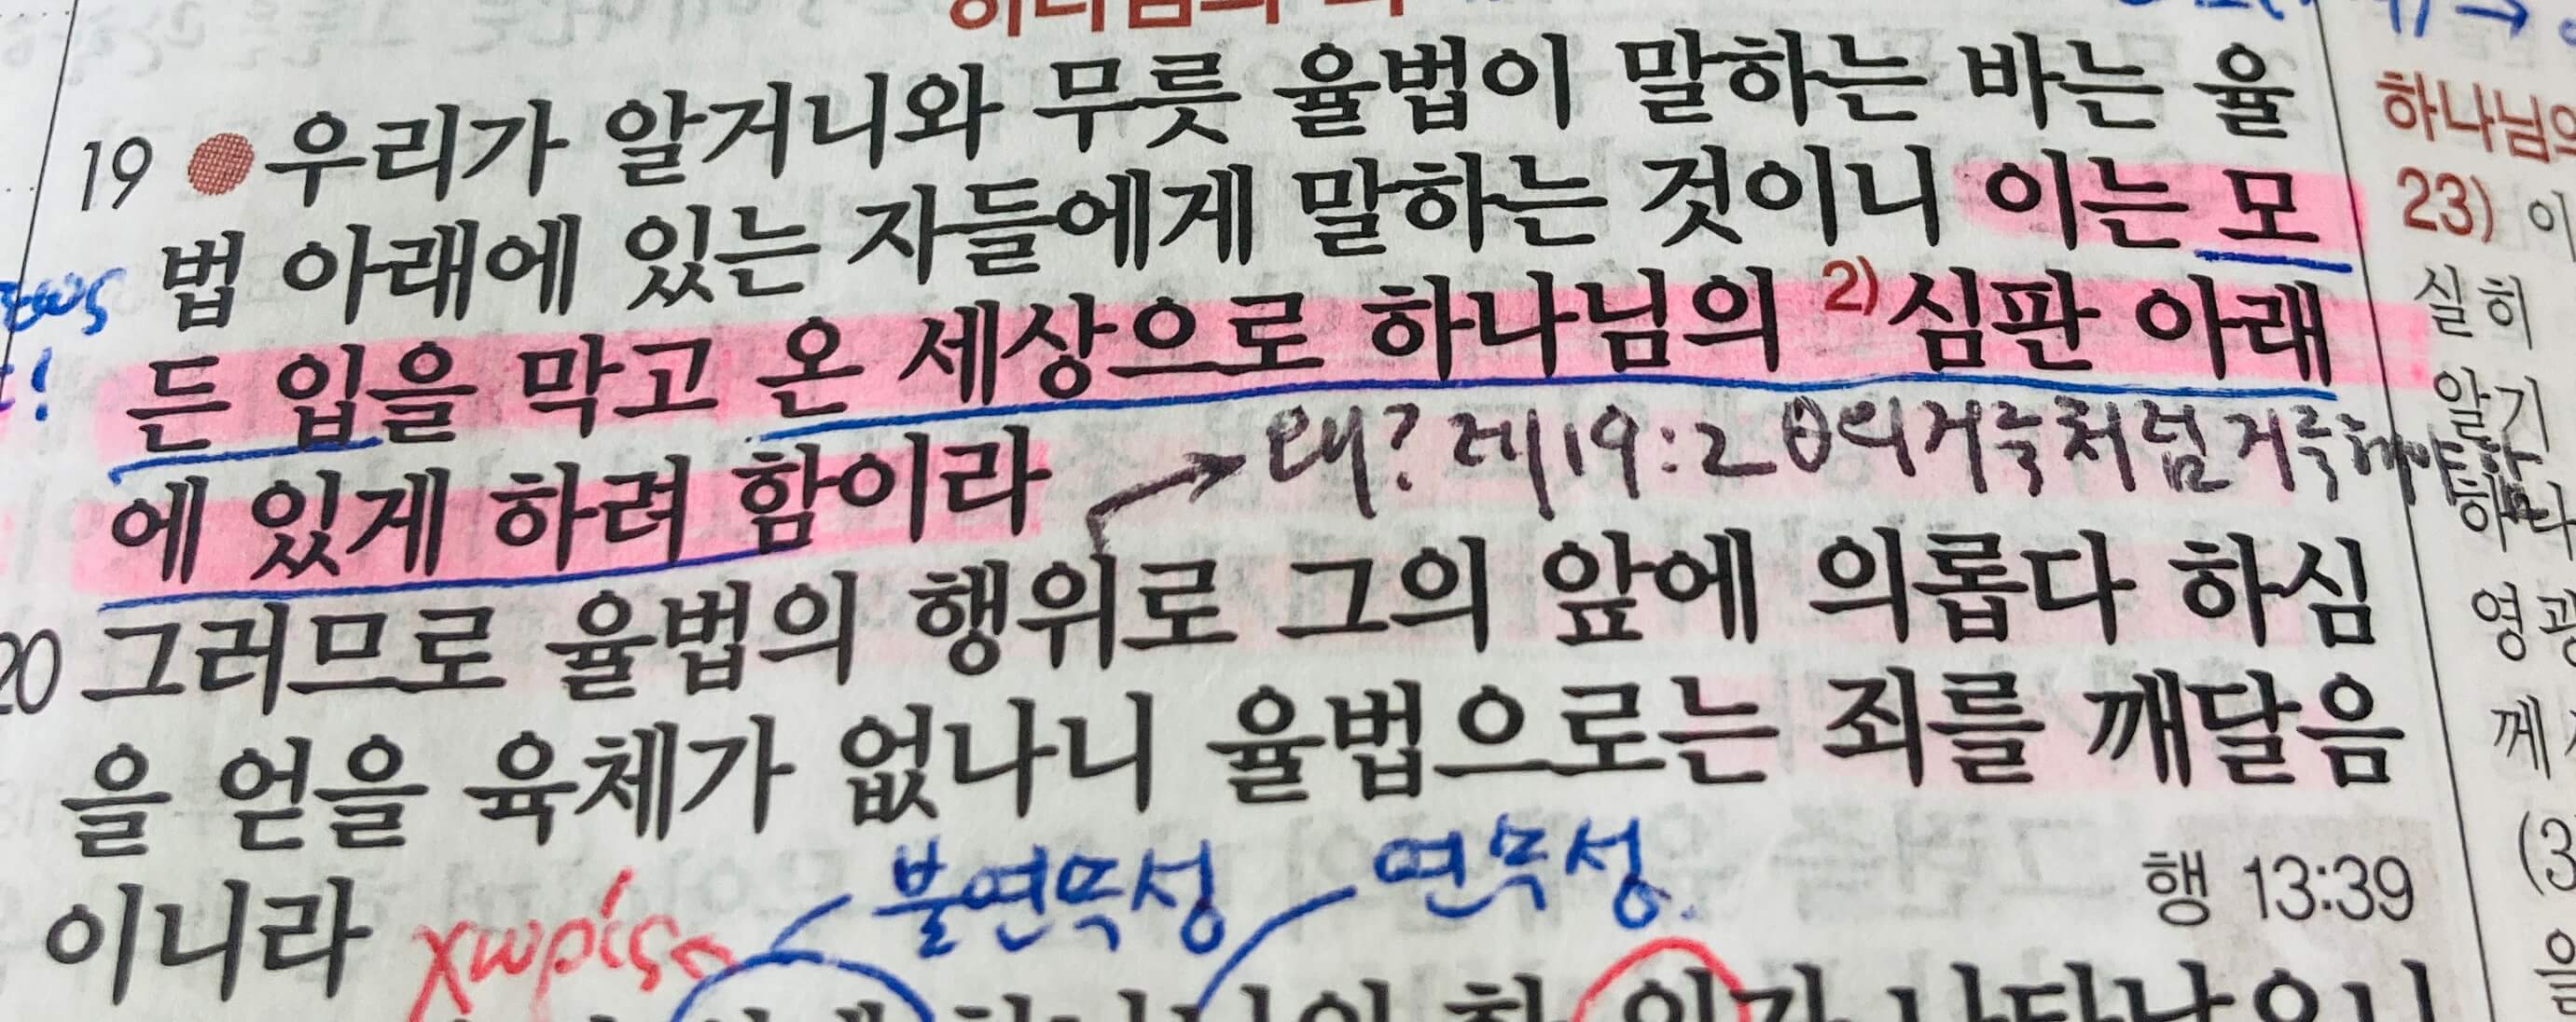 19 ●우리가 알거니와 무릇 율법이 말하는 바는 율
법 아래에 있는 자들에게 말하는 것이니 이는 모
든 입을 막고 온 세상으로 하나님의 2)심판 아래
왜? 레19:2 의 거룩처럼 거룩해야
에 있게 하려 함이라
20 그러므로 율법의 행위로 그의 앞에 의롭다 하심
을 얻을 육체가 없나니 율법으로는 죄를 깨달음
불연속성 연속성
이니라 χωρίς 행 13:39
하나님의
23) 이
실히
알기
영광
께
(3
음